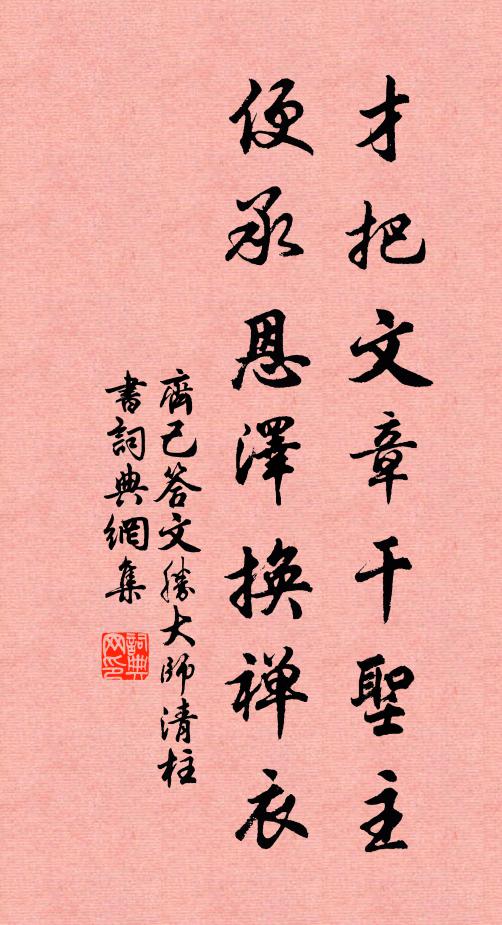 才把文章干聖主
便承恩澤換禅衣
齊己答文勝大師清柱
書詞典網集
詞典
网印